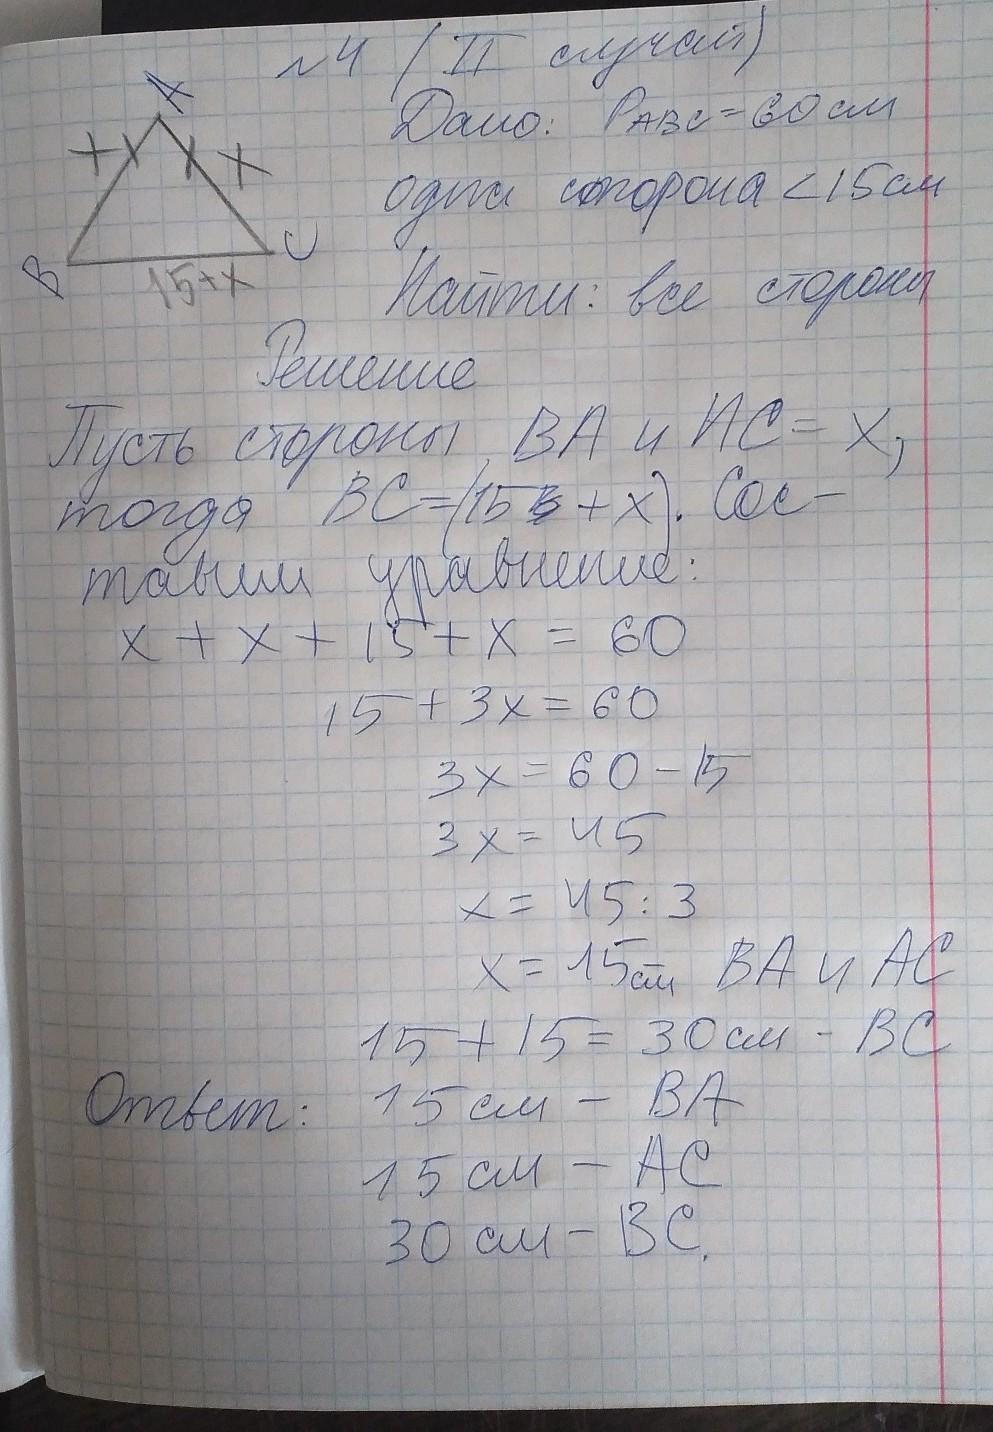 №4 (II случай)
A
Дано: P ABC = 60 см
x x
одна сторона < 15 см
B C
15+x
Найти: все стороны
Решение
Пусть стороны BA и AC = x,
тогда BC = (15 + x). Сос-
тавим уравнение:
x + x + 15 + x = 60
15 + 3x = 60
3x = 60 - 15
3x = 45
x = 45 : 3
x = 15см BA и AC
15 + 15 = 30 см - BC
Ответ: 15 см - BA
15 см - AC
30 см - BC.